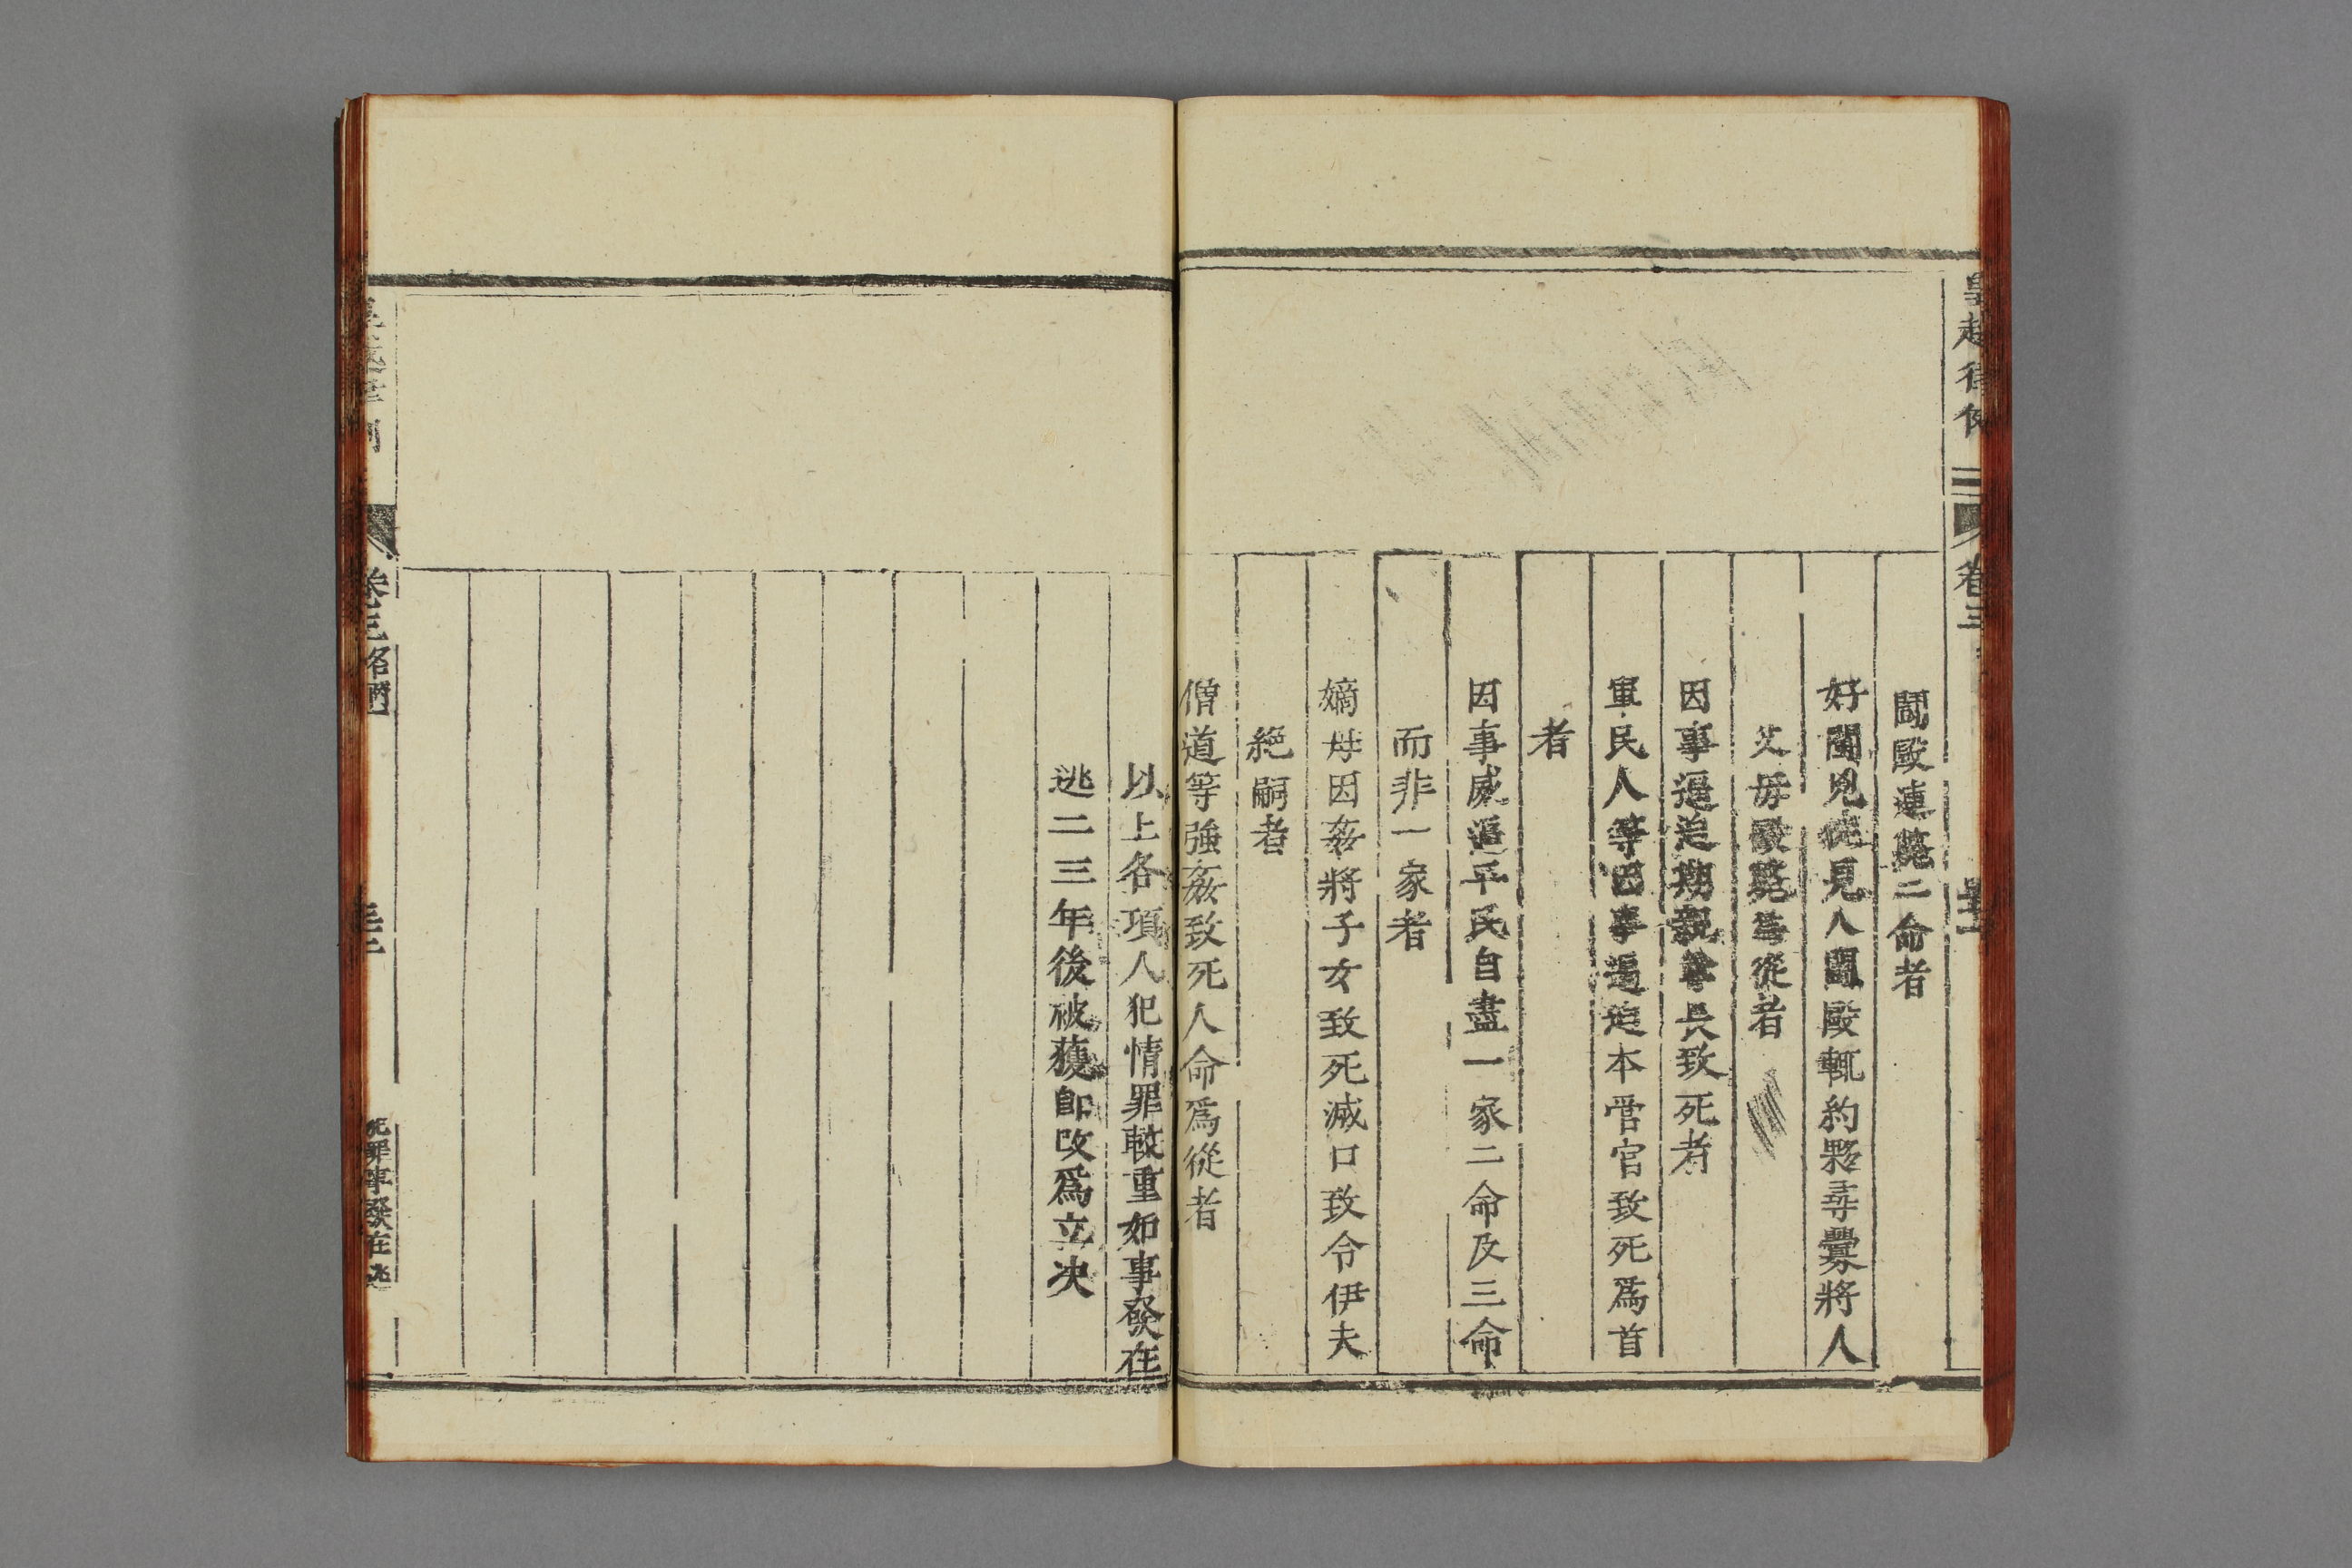 皇越律例 卷三
鬭毆連斃二命者
好鬭兇徒見人鬭毆輒約夥尋釁將人
父母毆斃爲從者
因事逼迫期親尊長致死者
軍民人等因事逼迫本管官致死爲首
者
因事威逼平民自盡一家二命及三命
而非一家者
嫡母因姦將子女致死滅口致令伊夫
絶嗣者
僧道等強姦致死人命爲從者
以上各項人犯情罪較重如事發在
逃二三年後被𫉬即改爲立决
皇越律例 卷三 名例 死罪事發在逃